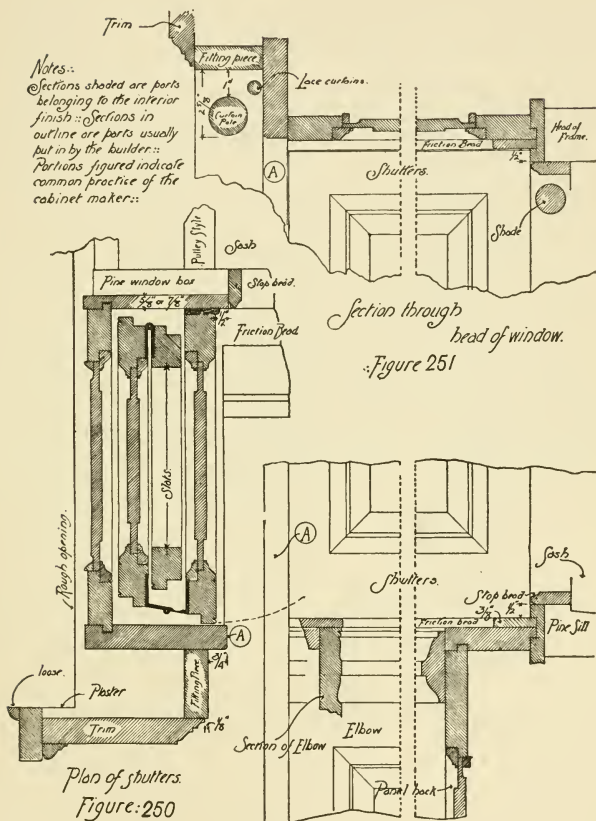 Trim
Notes:.
Sections shaded are parts
belonging to the interior
finish :: Sections in
outline are parts usually
put in by the builder::
Portions figured indicate
common practice of the
cabinet maker::
Fitting piece.
1"
2 5/8"
Curtain
Pole
Lace curtains.
A
Friction Bead
1/2"
Head of
Frame.
Shutters.
Shade
Section through
head of window.
:.Figure 251
Pulley Style
Sash
Pine window box
Stop bead.
5/8" or 7/8"
1/2"
Friction Bead.
Slats.
Rough opening.
A
3/4"
Fitting Piece
loose.
Plaster
Trim
1/8"
Plan of shutters.
Figure:250
A
Shutters.
Sash
Stop bead
3/8"
1/2"
Friction bead
Pine Sill
Section of Elbow
Elbow
Panel back